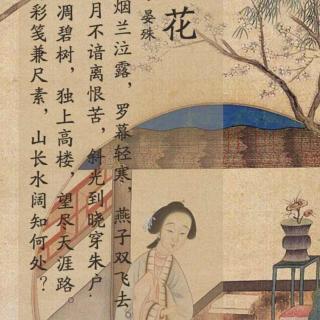 花
晏殊
烟兰泣露，罗幕轻寒，燕子双飞去。
月不谙离恨苦，斜光到晓穿朱户.
凋碧树，独上高楼，望尽天涯路。
彩笺兼尺素，山长水阔知何处？